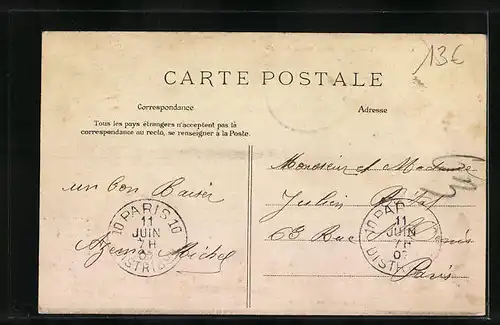 13€
CARTE POSTALE
Correspondance
Adresse
Tous les pays étrangers n'acceptent pas la
correspondance au recto, se renseigner à la Poste.
un bon Baiser
Michel
Monsieur et Madame
Julien
63 Rue
Paris
10 PARIS 10
11
JUIN
7H
DISTRIB
10 PAR
11
JUIN
7H
DISTR